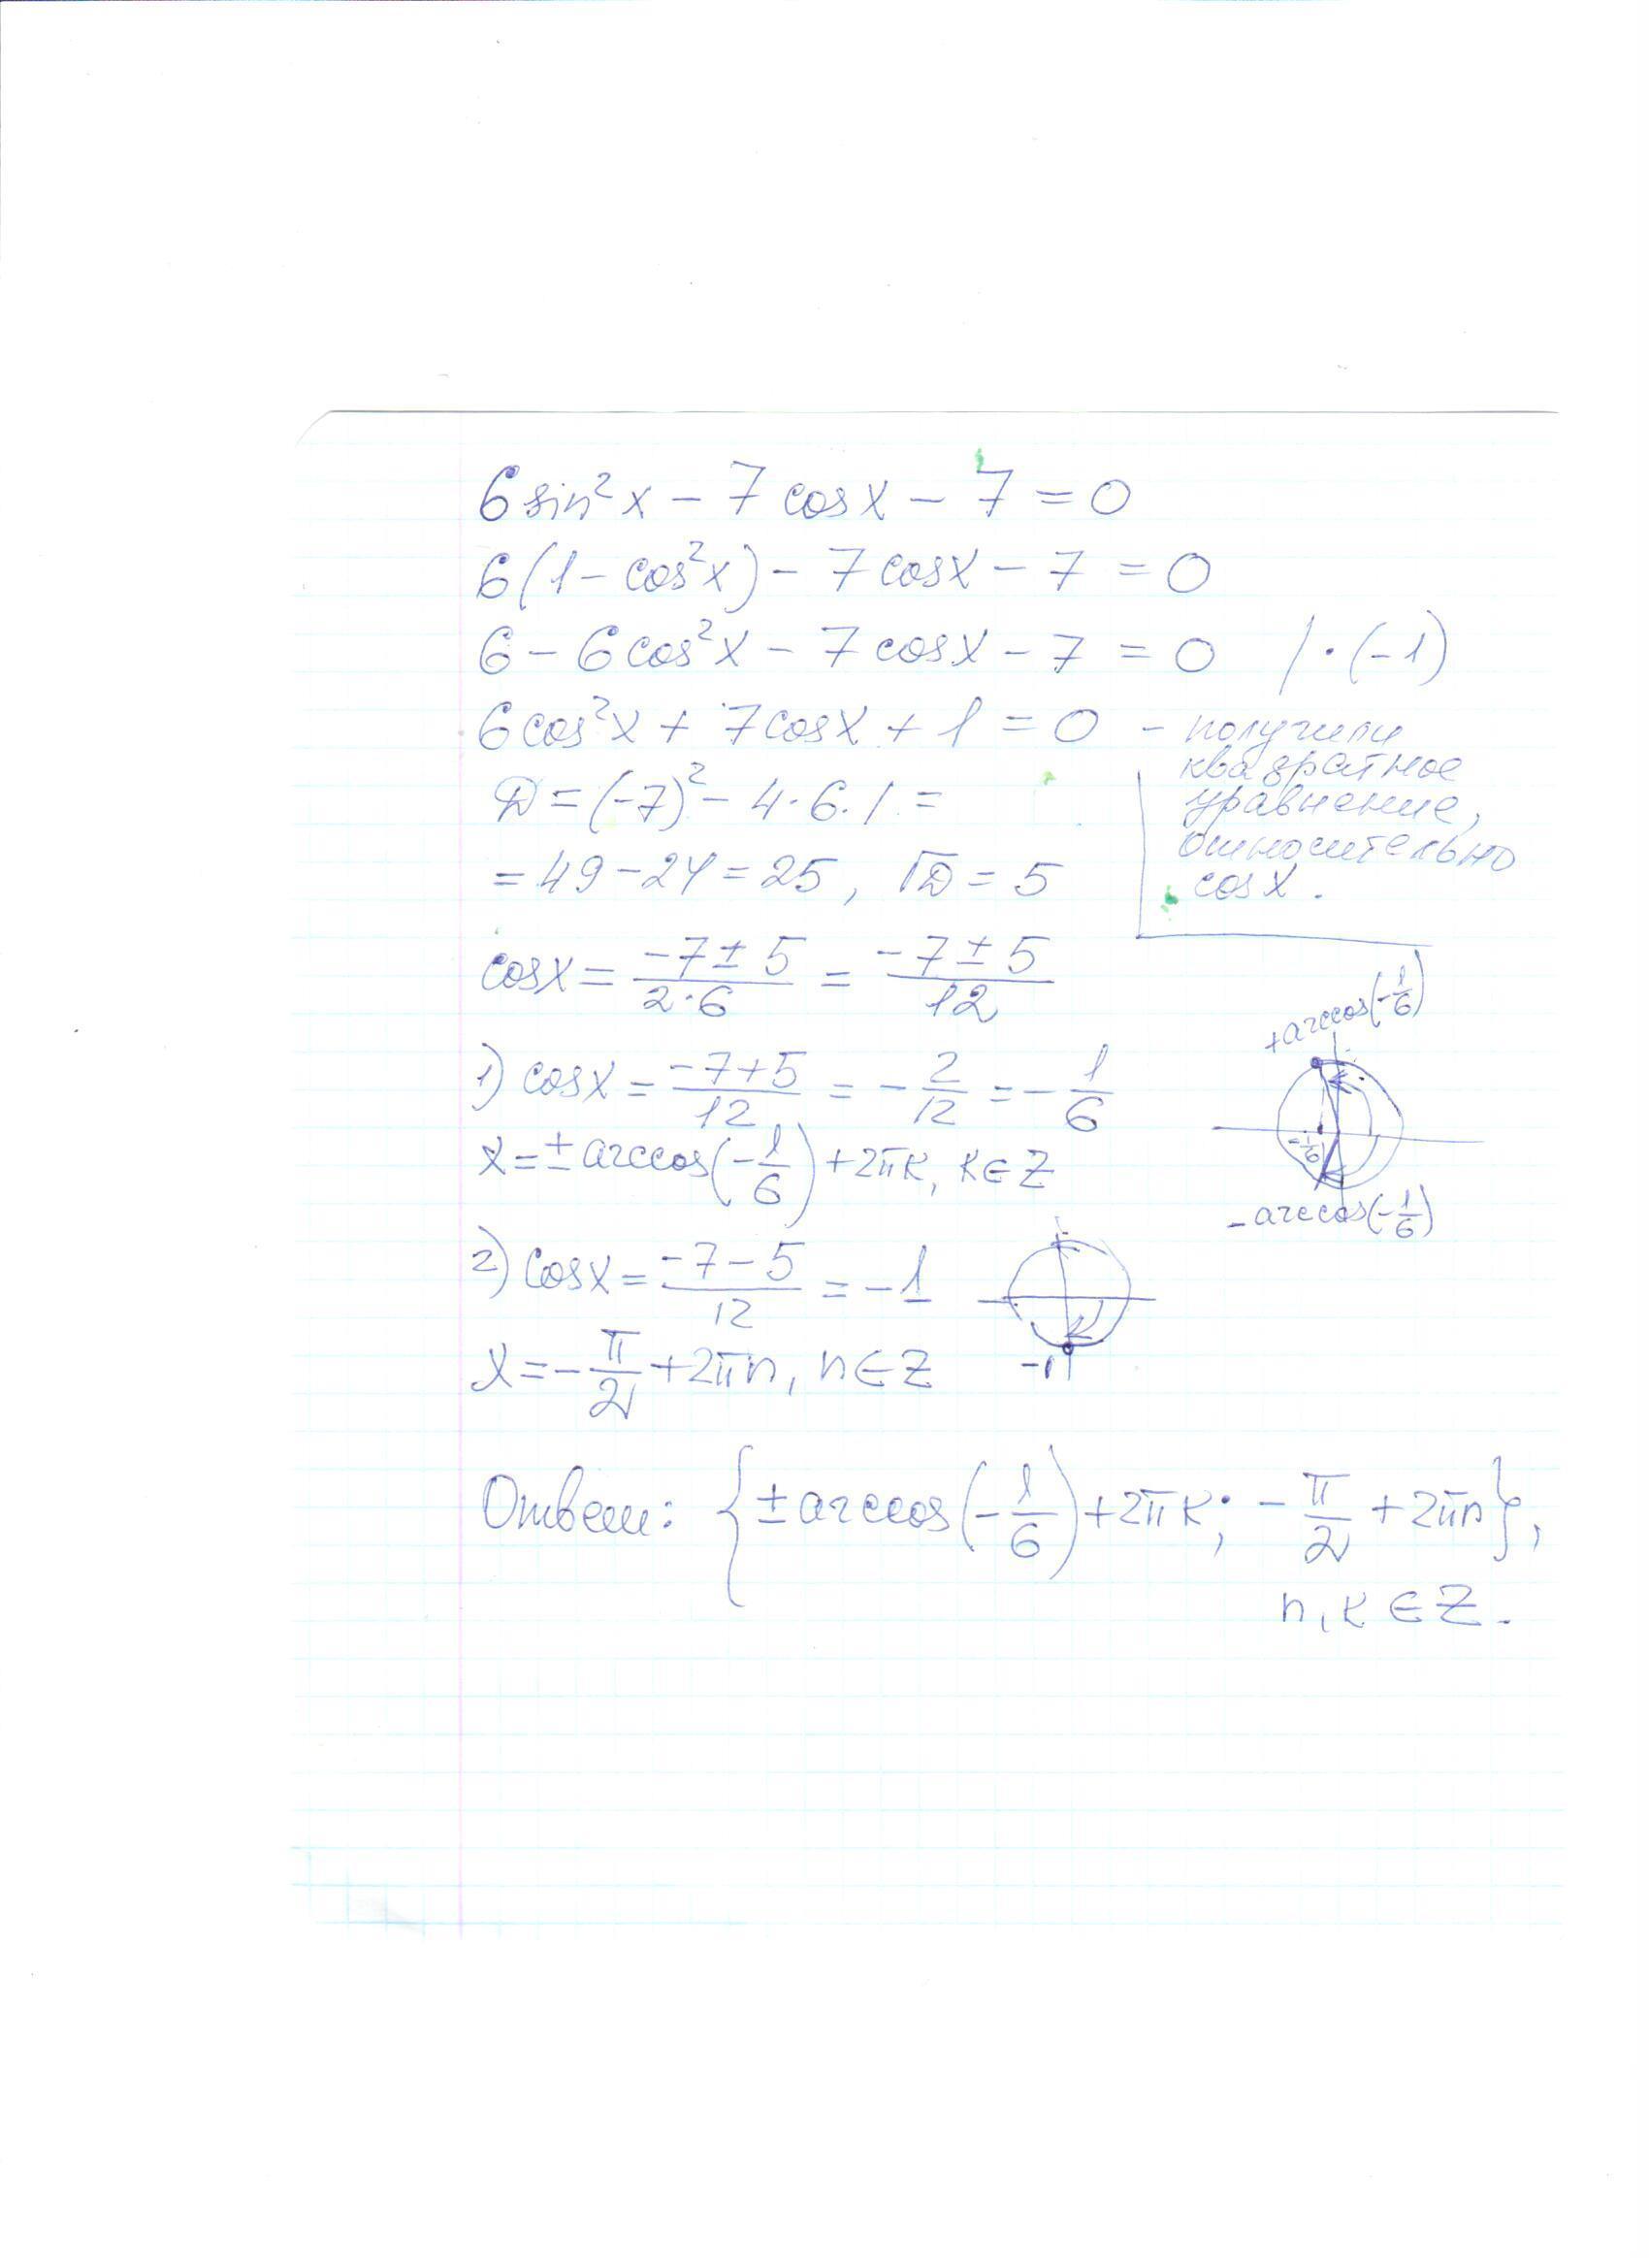 6 sin²x − 7 cosx − 7 = 0
6(1 − cos²x) − 7 cosx − 7 = 0
6 − 6 cos²x − 7 cosx − 7 = 0 / · (−1)
6 cos²x + 7 cosx + 1 = 0 – получили
квадратное
уравнение,
относительно
cosx.
D = (−7)² − 4·6·1 =
= 49 − 24 = 25, √D = 5
cosx = (−7 ± 5)/(2·6) = (−7 ± 5)/12
1) cosx = (−7+5)/12 = −2/12 = −1/6
x = ± arccos(−1/6) + 2πк, к ∈ Z
+arccos(−1/6)
−1/6
−arccos(−1/6)
2) cosx = (−7−5)/12 = −1
x = −π/2 + 2πn, n ∈ Z
Ответ: {± arccos(−1/6) + 2πк; −π/2 + 2πn},
n, к ∈ Z.